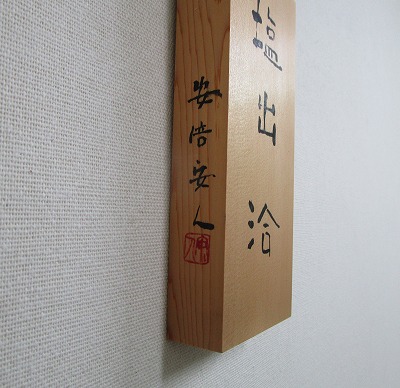 塩出洽
安倍安人